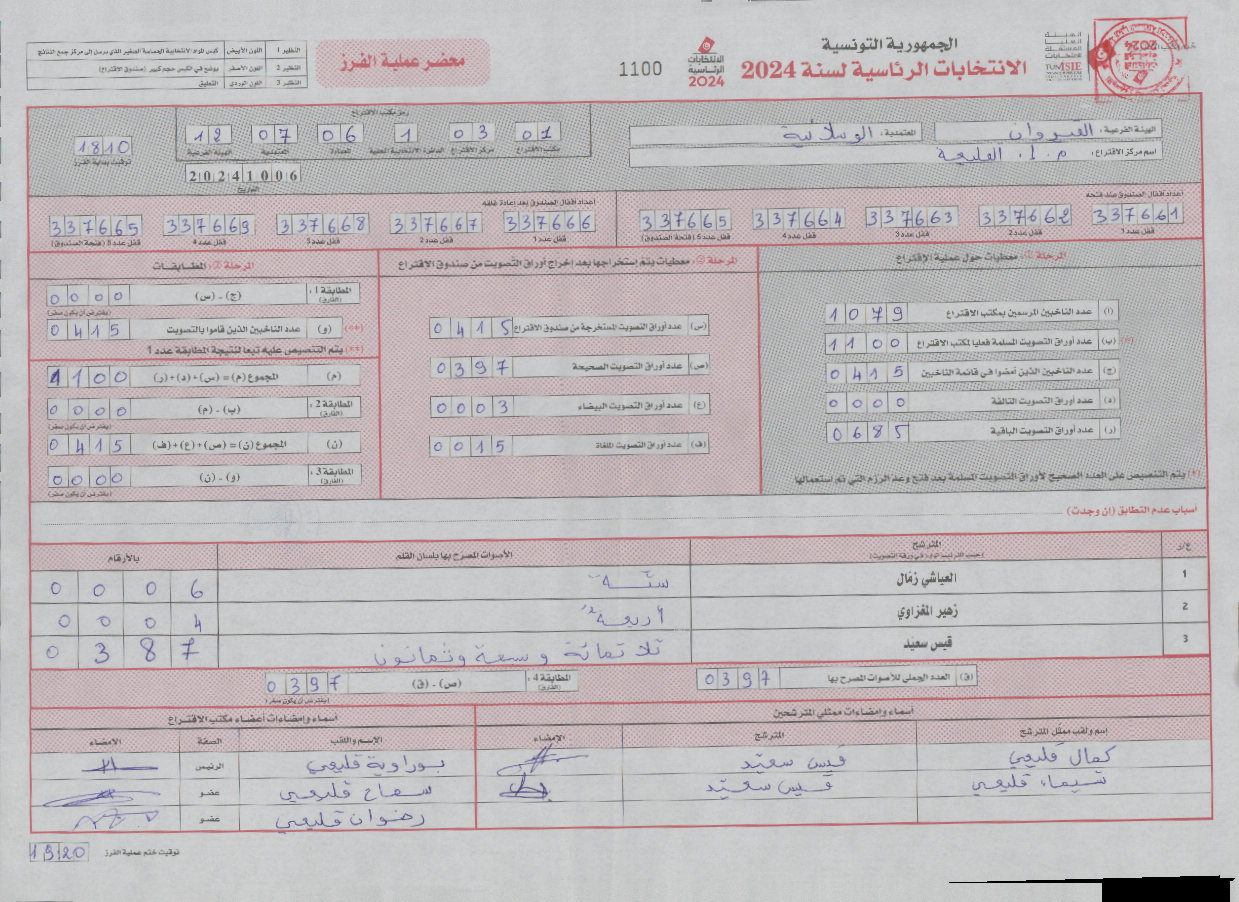 الجمهورية التونسية
الانتخابات الرئاسية لسنة 2024
الهيئة العليا المستقلة للانتخابات
TUNISIE
الانتخابات الرئاسية 2024
1100
محضر عملية الفرز
النظير 1 اللون الأبيض كيس المواد الانتخابية الحساسة الصغير الذي يرسل إلى مركز جمع النتائج
النظير 2 اللون الأصفر يوضع في الكيس حجم كبير (صندوق الاقتراع)
النظير 3 اللون الوردي التعليق
الهيئة الفرعية: القيروان المعتمدية: الوسلاتية
اسم مركز الاقتراع: م.إ. القليعة
رمز مكتب الاقتراع
01 03 1 06 07 12
مكتب الاقتراع مركز الاقتراع الدائرة الانتخابية المحلية العمادة المعتمدية الهيئة الفرعية
20241006
التاريخ
1810
توقيت بداية الفرز
أعداد أقفال الصندوق عند فتحه
337661 337662 337663 337664 337665
قفل عدد 1 قفل عدد 2 قفل عدد 3 قفل عدد 4 قفل عدد 5 (فتحة الصندوق)
أعداد أقفال الصندوق بعد إعادة غلقه
337666 337667 337668 337669 337665
قفل عدد 1 قفل عدد 2 قفل عدد 3 قفل عدد 4 قفل عدد 5 (فتحة الصندوق)
المرحلة ①: معطيات حول عملية الاقتراع
(أ) عدد الناخبين المرسمين بمكتب الاقتراع 1079
(*) (ب) عدد أوراق التصويت المسلمة فعليا لمكتب الاقتراع 1100
(ج) عدد الناخبين الذين أمضوا في قائمة الناخبين 0415
(د) عدد أوراق التصويت التالفة 0000
(ر) عدد أوراق التصويت الباقية 0685
(*) يتم التنصيص على العدد الصحيح لأوراق التصويت المسلمة بعد فتح وعد الرزم التي تم استعمالها
المرحلة ②: معطيات يتم استخراجها بعد إخراج أوراق التصويت من صندوق الاقتراع
(س) عدد أوراق التصويت المستخرجة من صندوق الاقتراع 0415
(ص) عدد أوراق التصويت الصحيحة 0397
(ع) عدد أوراق التصويت البيضاء 0003
(ف) عدد أوراق التصويت الملغاة 0015
المرحلة ③: المطابقات
المطابقة 1: (الفارق) (ج) - (س) 0000
(يفترض أن يكون صفر)
(**) (و) عدد الناخبين الذين قاموا بالتصويت 0415
(**) يتم التنصيص عليه تبعا لنتيجة المطابقة عدد 1
(م) المجموع (م) = (س) + (د) + (ر) 1100
المطابقة 2: (الفارق) (ب) - (م) 0000
(يفترض أن يكون صفر)
(ن) المجموع (ن) = (ص) + (ع) + (ف) 0415
المطابقة 3: (الفارق) (و) - (ن) 0000
(يفترض أن يكون صفر)
أسباب عدم التطابق (إن وجدت)
ع/ر المترشح الأصوات المصرح بها بلسان القلم بالأرقام
(حسب الترتيب الوارد في ورقة التصويت)
1 العياشي زمال ستة 0006
2 زهير المغزاوي أربعة 0004
3 قيس سعيّد ثلاثمائة و سبعة وثمانون 0387
(ق) العدد الجملي للأصوات المصرح بها 0397
المطابقة 4: (الفارق) (ص) - (ق) 0397
(يفترض أن يكون صفر)
أسماء وإمضاءات ممثلي المترشحين
اسم ولقب ممثل المترشح المترشح الإمضاء
كمال قليعي قيس سعيّد
شيماء قليعي قيس سعيّد
أسماء وإمضاءات أعضاء مكتب الاقتراع
الاسم واللقب الصفة الإمضاء
بوراوية قليعي الرئيس
سماح قليعي عضو
رضوان قليعي عضو
توقيت ختم عملية الفرز 1920